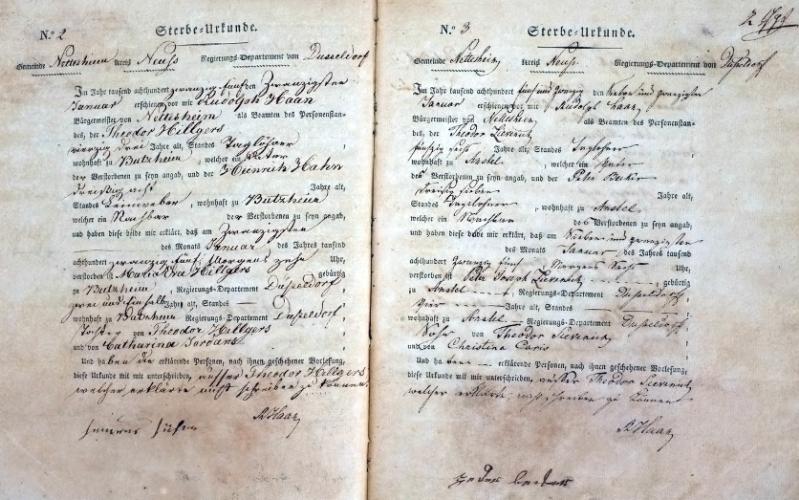 N.º 2
Sterbe-Urkunde.
Gemeinde Nettesheim Kreis Neuss Regierungs-Departement von Dusseldorf
Im Jahr tausend achthundert zwanzig fünf den Zwanzigsten
Januar erschienen vor mir Rudolph Haan
Bürgermeister von Nettesheim als Beamten des Personenstan-
des, der Theodor Hillgers
vierzig drei Jahre alt, Standes Taglöhner
wohnhaft zu Butzheim, welcher ein Vater
der Verstorbenen zu seyn angab, und der Heinrich Hahn
dreißig acht Jahre alt,
Standes Leinweber, wohnhaft zu Butzheim
welcher ein Nachbar der Verstorbenen zu seyn angab,
und haben diese beide mir erklärt, daß am Zwanzigsten
des Monats Januar des Jahres tausend
achthundert zwanzig fünf Morgens zehn Uhr,
verstorben ist Hillgers gebürtig
zu Butzheim, Regierungs-Departement Dusseldorf
zwei und ein halb Jahre alt, Standes
wohnhaft zu Butzheim Regierungs-Departement Dusseldorf,
Tochter von Theodor Hillgers
und von Catharina Jordans
Und haben die erklärende Personen, nach ihnen geschehener Vorlesung,
diese Urkunde mit mir unterschrieben, ausser Theodor Hillgers
welcher erklärte nicht schreiben zu können.
R Haan
N.º 3
Sterbe-Urkunde.
Gemeinde Nettesheim Kreis Neuss Regierungs-Departement von Dusseldorf
Im Jahr tausend achthundert fünf und zwanzig den sieben und zwanzigsten
Januar erschienen vor mir Rudolph Haan
Bürgermeister von Nettesheim als Beamten des Personenstan-
des, der Theodor
fünfzig sechs Jahre alt, Standes Taglöhner
wohnhaft zu Anstel, welcher ein Vater
des Verstorbenen zu seyn angab, und der Peter
dreißig sieben Jahre alt,
Standes Taglöhner, wohnhaft zu Anstel
welcher ein Nachbar des Verstorbenen zu seyn angab,
und haben diese beide mir erklärt, daß am sieben und zwanzigsten
des Monats Januar des Jahres tausend
achthundert zwanzig fünf Morgens sechs Uhr,
verstorben ist Peter Joseph gebürtig
zu Anstel, Regierungs-Departement Dusseldorf
Jahre alt, Standes
wohnhaft zu Anstel Regierungs-Departement Dusseldorf,
Sohn von Theodor
und von Christina
Und haben erklärende Personen, nach ihnen geschehener Vorlesung,
diese Urkunde mit mir unterschrieben, Theodor
welcher erklärte nicht schreiben zu können
R Haan